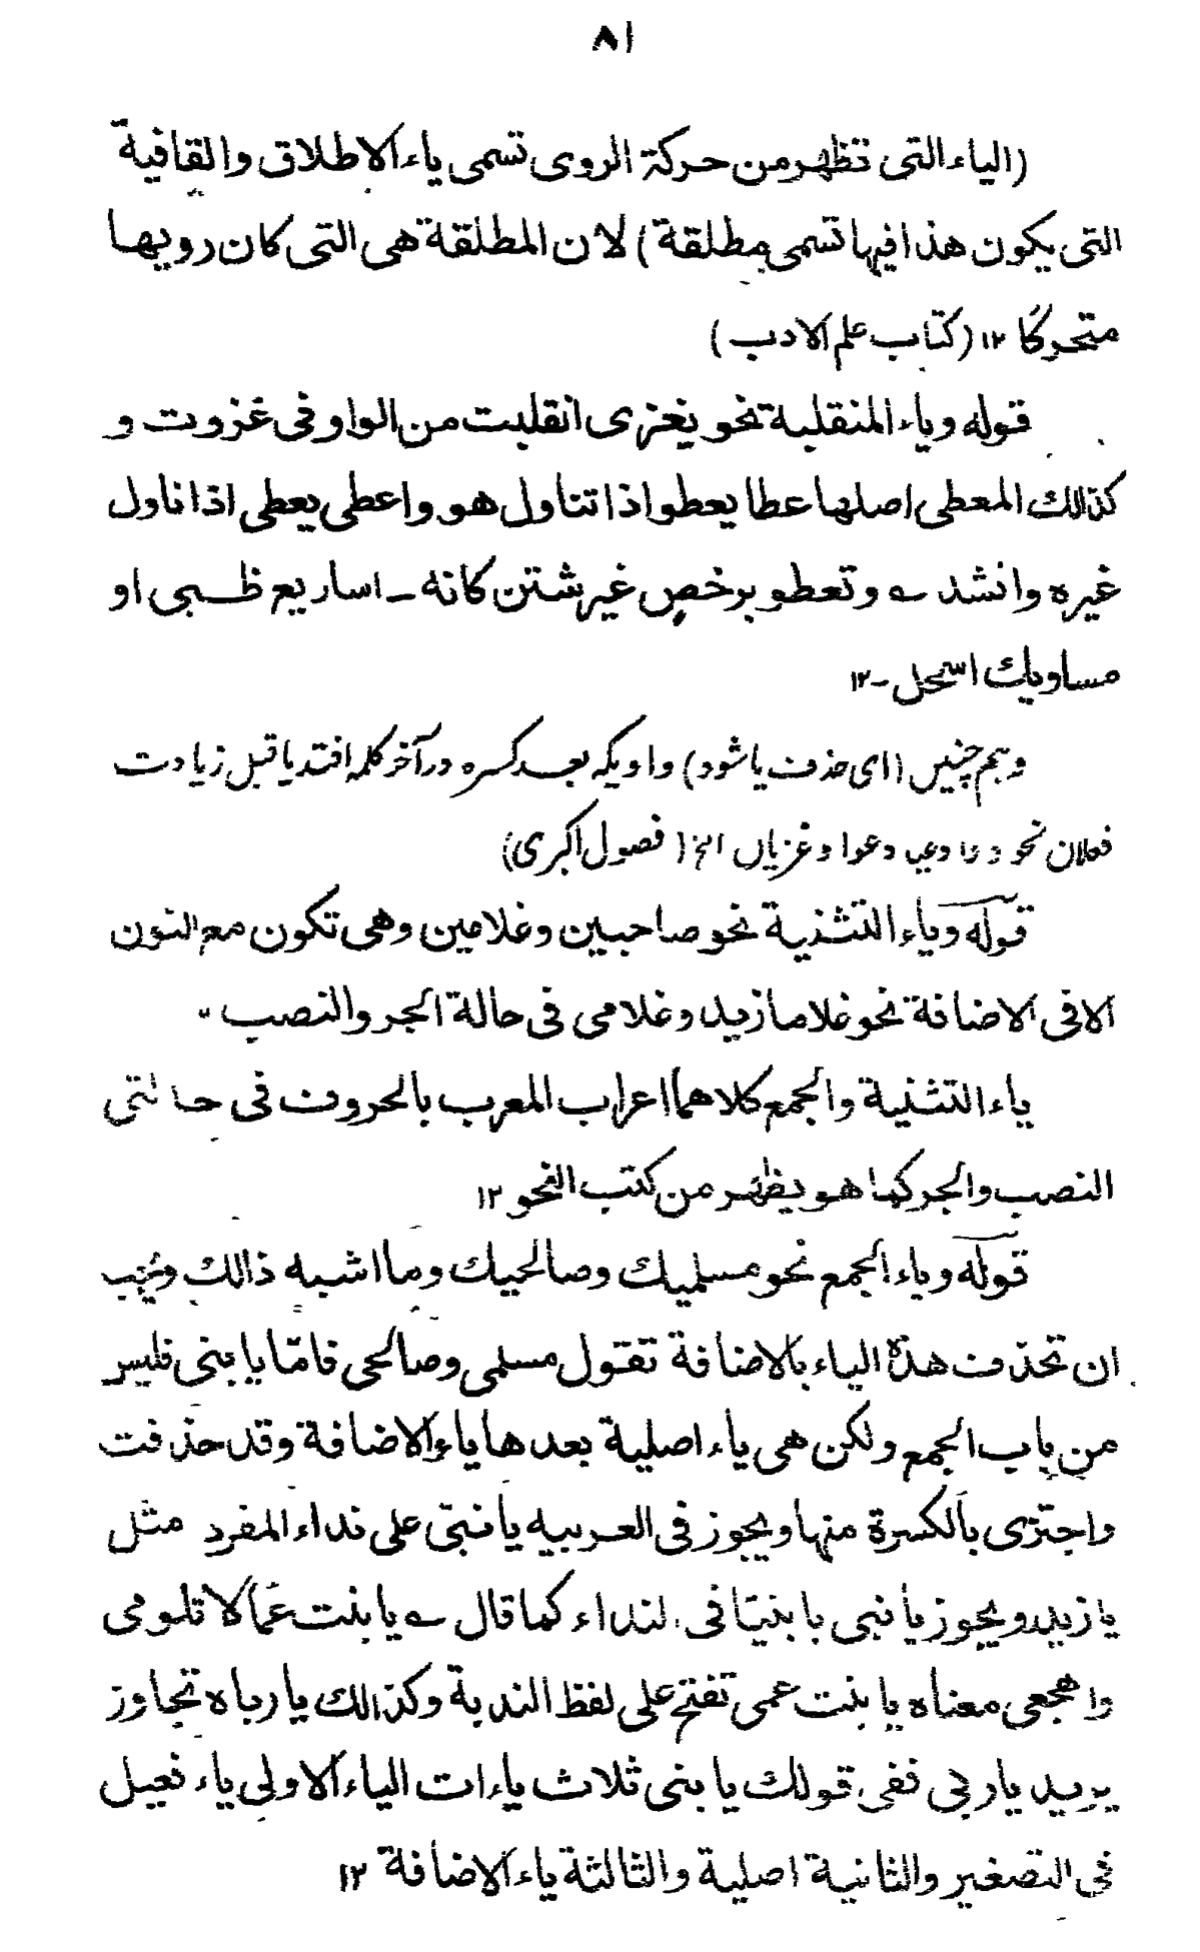 ٨١
(الیاء التی تظهر من حرکة الروی تسمی یاء الاطلاق والقافیة
التی یکون هذا فیها تسمی مطلقة) لان المطلقة هی التی کان رویها
متحرکا ١٢ (کتاب علم الادب)
قوله ویاء المنقلبة نحو یغزی انقلبت من الواو فی غزوت و
کذالك المعطی اصلها عطا یعطو اذا تناول هو واعطی یعطی اذا ناول
غیره وانشد ے وتعطو برخص غیر شتن کانه ـ اساریع ظبی او
مساویك اسحل ـ ١٢
وہم چنیں (ای حذف یا شود) واویکہ بعد کسرہ در آخر کلمہ افتد یا قبل زیادت
فعلان نحو ودعوا وغزیان الخ (فصول اکبری)
قوله ویاء التثنیة نحو صاحبین وغلامین وهی تکون مع النون
الا فی الاضافة نحو غلاما زید وغلامی فی حالة الجر والنصب
یاء التثنیة والجمع کلاهما اعراب المعرب بالحروف فی حالتی
النصب والجر کما هو یظهر من کتب النحو ١٢
قوله ویاء الجمع نحو مسلمیك وصالحیك وما اشبه ذالك ویجب
ان تحذف هذه الیاء بالاضافة تقول مسلمی وصالحی فامّا یا بنی فلیس
من باب الجمع ولکن هی یاء اصلیة بعدها یاء الاضافة وقد حذفت
واجتزی بالکسرة منها ویجوز فی العربیه یا نبیّ علی نداء المفرد مثل
یا زید ویجوز یا نبی یا بنیّا فی النداء کما قال ے یا بنت عمّا لا تلومی
واهجعی معناه یا بنت عمی تفتح علی لفظ الندبة وکذالك یا رباه تجاوز
یرید یا ربی ففی قولك یا بنی ثلاث یاءات الیاء الاولی یاء فعیل
فی التصغیر والثانیة اصلیة والثالثة یاء الاضافة ١٢